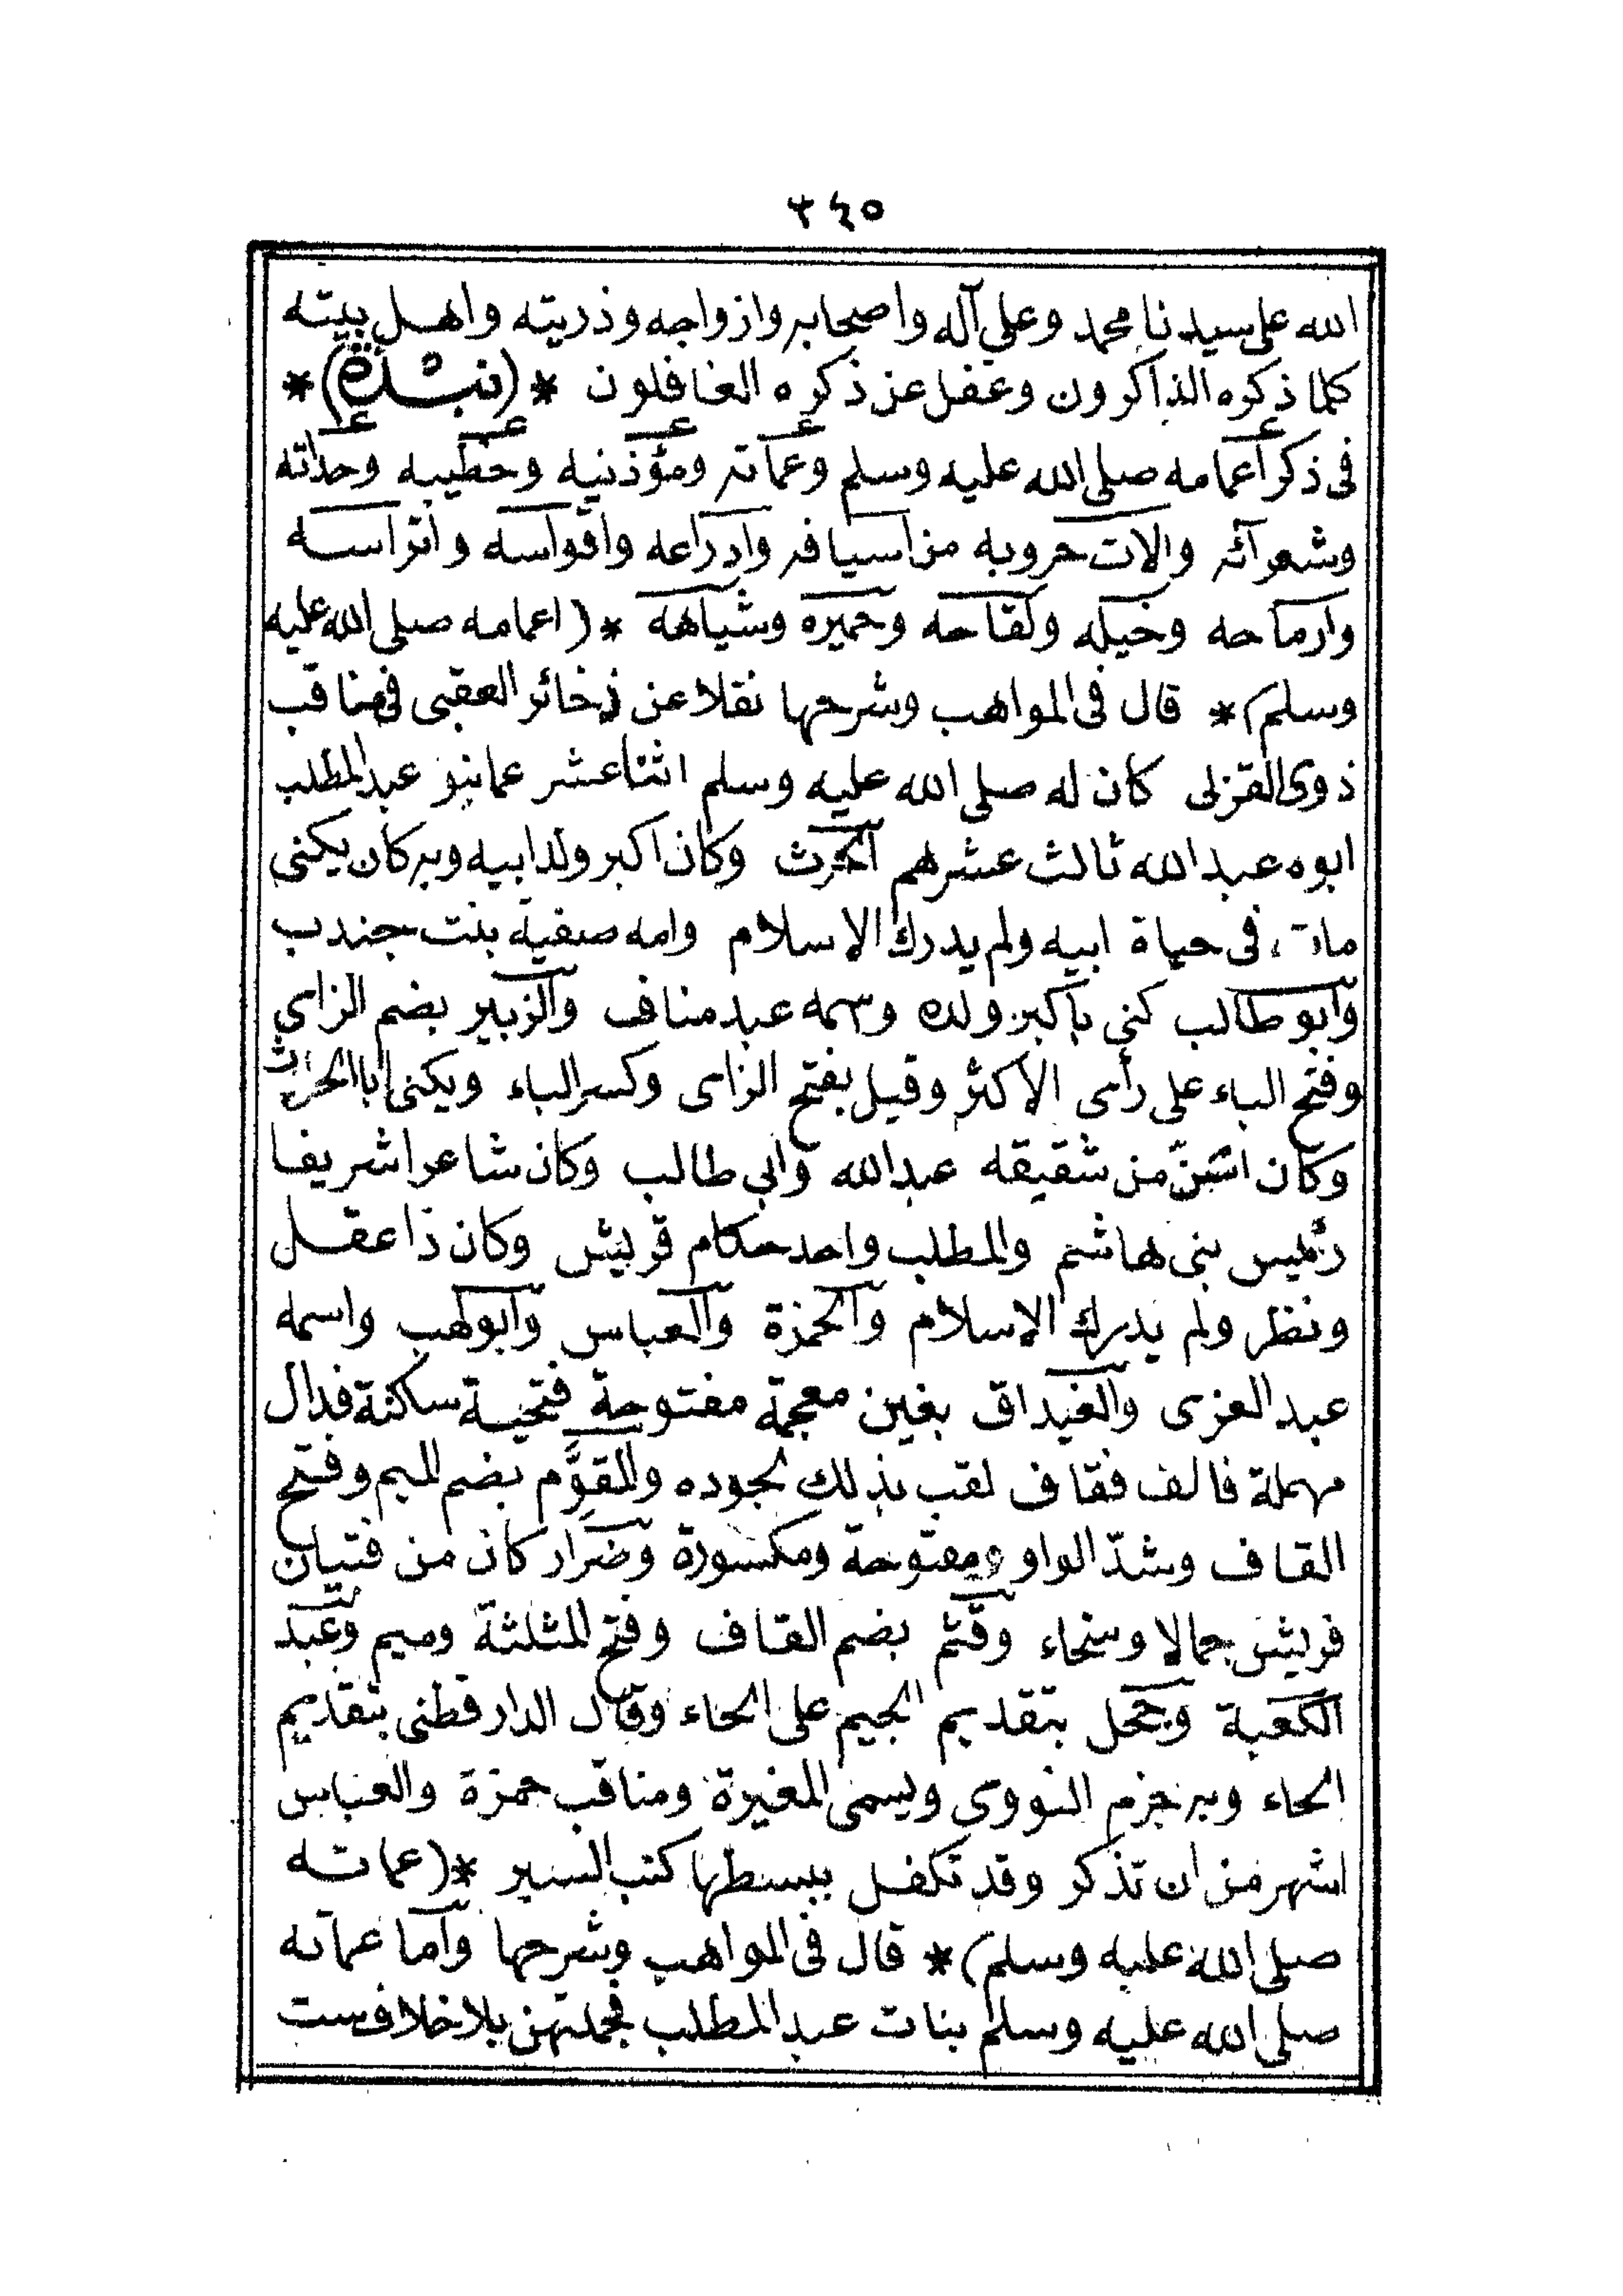 ٣٤٥
الله على سيدنا محمد وعلي آله واصحابه وازواجه وذريته واهل بيته
كلما ذكره الذاكرون وغفل عن ذكره الغافلون * (نبذة) *
فى ذكر أعمامه صلى الله عليه وسلم وعماته ومؤذنيه وخطيبه وحداته
وشعرآئه والات حروبه من اسيافه وادراعه واقواسه واتراسه
وارماحه وخيله ولقاحه وحميره وشياهه * (اعمامه صلى الله عليه
وسلم) * قال فى المواهب وشرحها نقلا عن ذخائر العقبى فى مناقب
ذوى القربى كان له صلى الله عليه وسلم اثنا عشر عما بنو عبد المطلب
ابوه عبد الله ثالث عشرهم الحرث وكان اكبر ولد ابيه وبه كان يكنى
مات فى حياة ابيه ولم يدرك الاسلام وامه صفية بنت جندب
وآبو طالب كني بأكبر ولده وسمه عبد مناف والزبير بضم الزاى
وفتح الباء على رأى الاكثر وقيل بفتح الزاى وكسر الباء ويكنى ابا الحارث
وكان اسنّ من شقيقه عبد الله وابي طالب وكان شاعرا شريفا
رئيس بنى هاشم والمطلب واحد حكام قريش وكان ذا عقل
ونظر ولم يدرك الاسلام والحمزة والعباس وآبو لهب واسمه
عبد العزى والغيداق بغين معجمة مفتوحة فتحية ساكنة فدال
مهملة فالف فقاف لقب بذلك لجوده والمقوَّم بضم الميم وفتح
القاف وشدّ الواو ومفتوحة ومكسورة وضرار كان من فتيان
قريش جمالا وسخاء وقثم بضم القاف وفتح المثلثة وميم وعبد
الكعبة وجحل بتقديم الجيم على الحاء وقال الدارقطنى بتقديم
الحاء وبه جزم النووى ويسمى المغيرة ومناقب حمزة والعباس
اشهر من ان تذكر وقد تكفل ببسطها كتب السير * (عماته
صلى الله عليه وسلم) * قال فى المواهب وشرحها وآما عماته
صلى الله عليه وسلم بنات عبد المطلب فجملتهن بلا خلاف ست